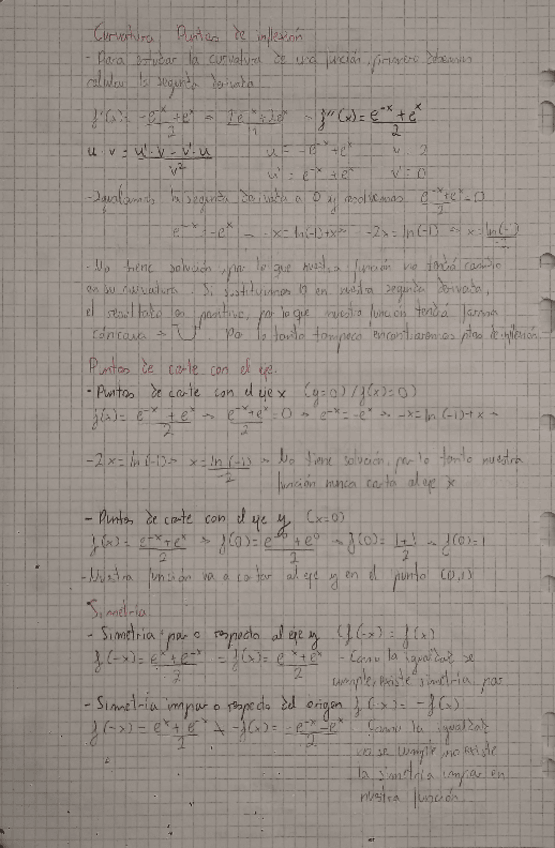 Curvatura Puntos de inflexión
- Para estudiar la curvatura de una función, primero debemos
calcular la segunda derivada.
f'(x) = -e^-x + e^x / 2 → 2e^-x + 2e^x / 4 → f''(x) = e^-x + e^x / 2
u · v = u' · v - v' · u / v² u = -e^-x + e^x v 2
u' = e^-x + e^x v' = 0
- Igualamos la segunda derivada a 0 y resolvemos e^-x + e^x / 2 = 0
e^-x = -e^x → -x = ln(-1) + x → -2x = ln(-1) → x = ln(-1) / -2
- No tiene solución, por lo que nuestra función no tendrá cambio
en su curvatura. Si sustituimos en nuestra segunda derivada,
el resultado es positivo, por lo que nuestra función tendrá forma
cóncava → U Por lo tanto tampoco encontraremos ptos de inflexión
Puntos de corte con el eje.
- Puntos de corte con el eje x (y=0) / f(x)=0)
f(x) = e^-x + e^x / 2 → e^-x + e^x / 2 = 0 → e^-x = -e^x → -x = ln(-1) + x →
-2x = ln(-1) → x = ln(-1) / 2 → No tiene solución, por lo tanto nuestra
función nunca corta al eje x
- Puntos de corte con el eje y (x=0)
f(x) = e^-x + e^x / 2 → f(0) = e^-0 + e^0 / 2 → f(0) = 1+1 / 2 → f(0) = 1
- Nuestra función va a cortar al eje y en el punto (0,1)
Simetría
- Simetría par o respecto al eje y (f(-x) = f(x)
f(-x) = e^x + e^-x / 2 = f(x) = e^-x + e^x / 2 - Como la igualdad se
cumple, existe simetría par
- Simetría impar o respecto del origen f(-x) = -f(x)
f(-x) = e^x + e^-x / 2 ≠ -f(x) = -e^-x - e^x / 2 - Como la igualdad
no se cumple no existe
la simetría impar en
nuestra función